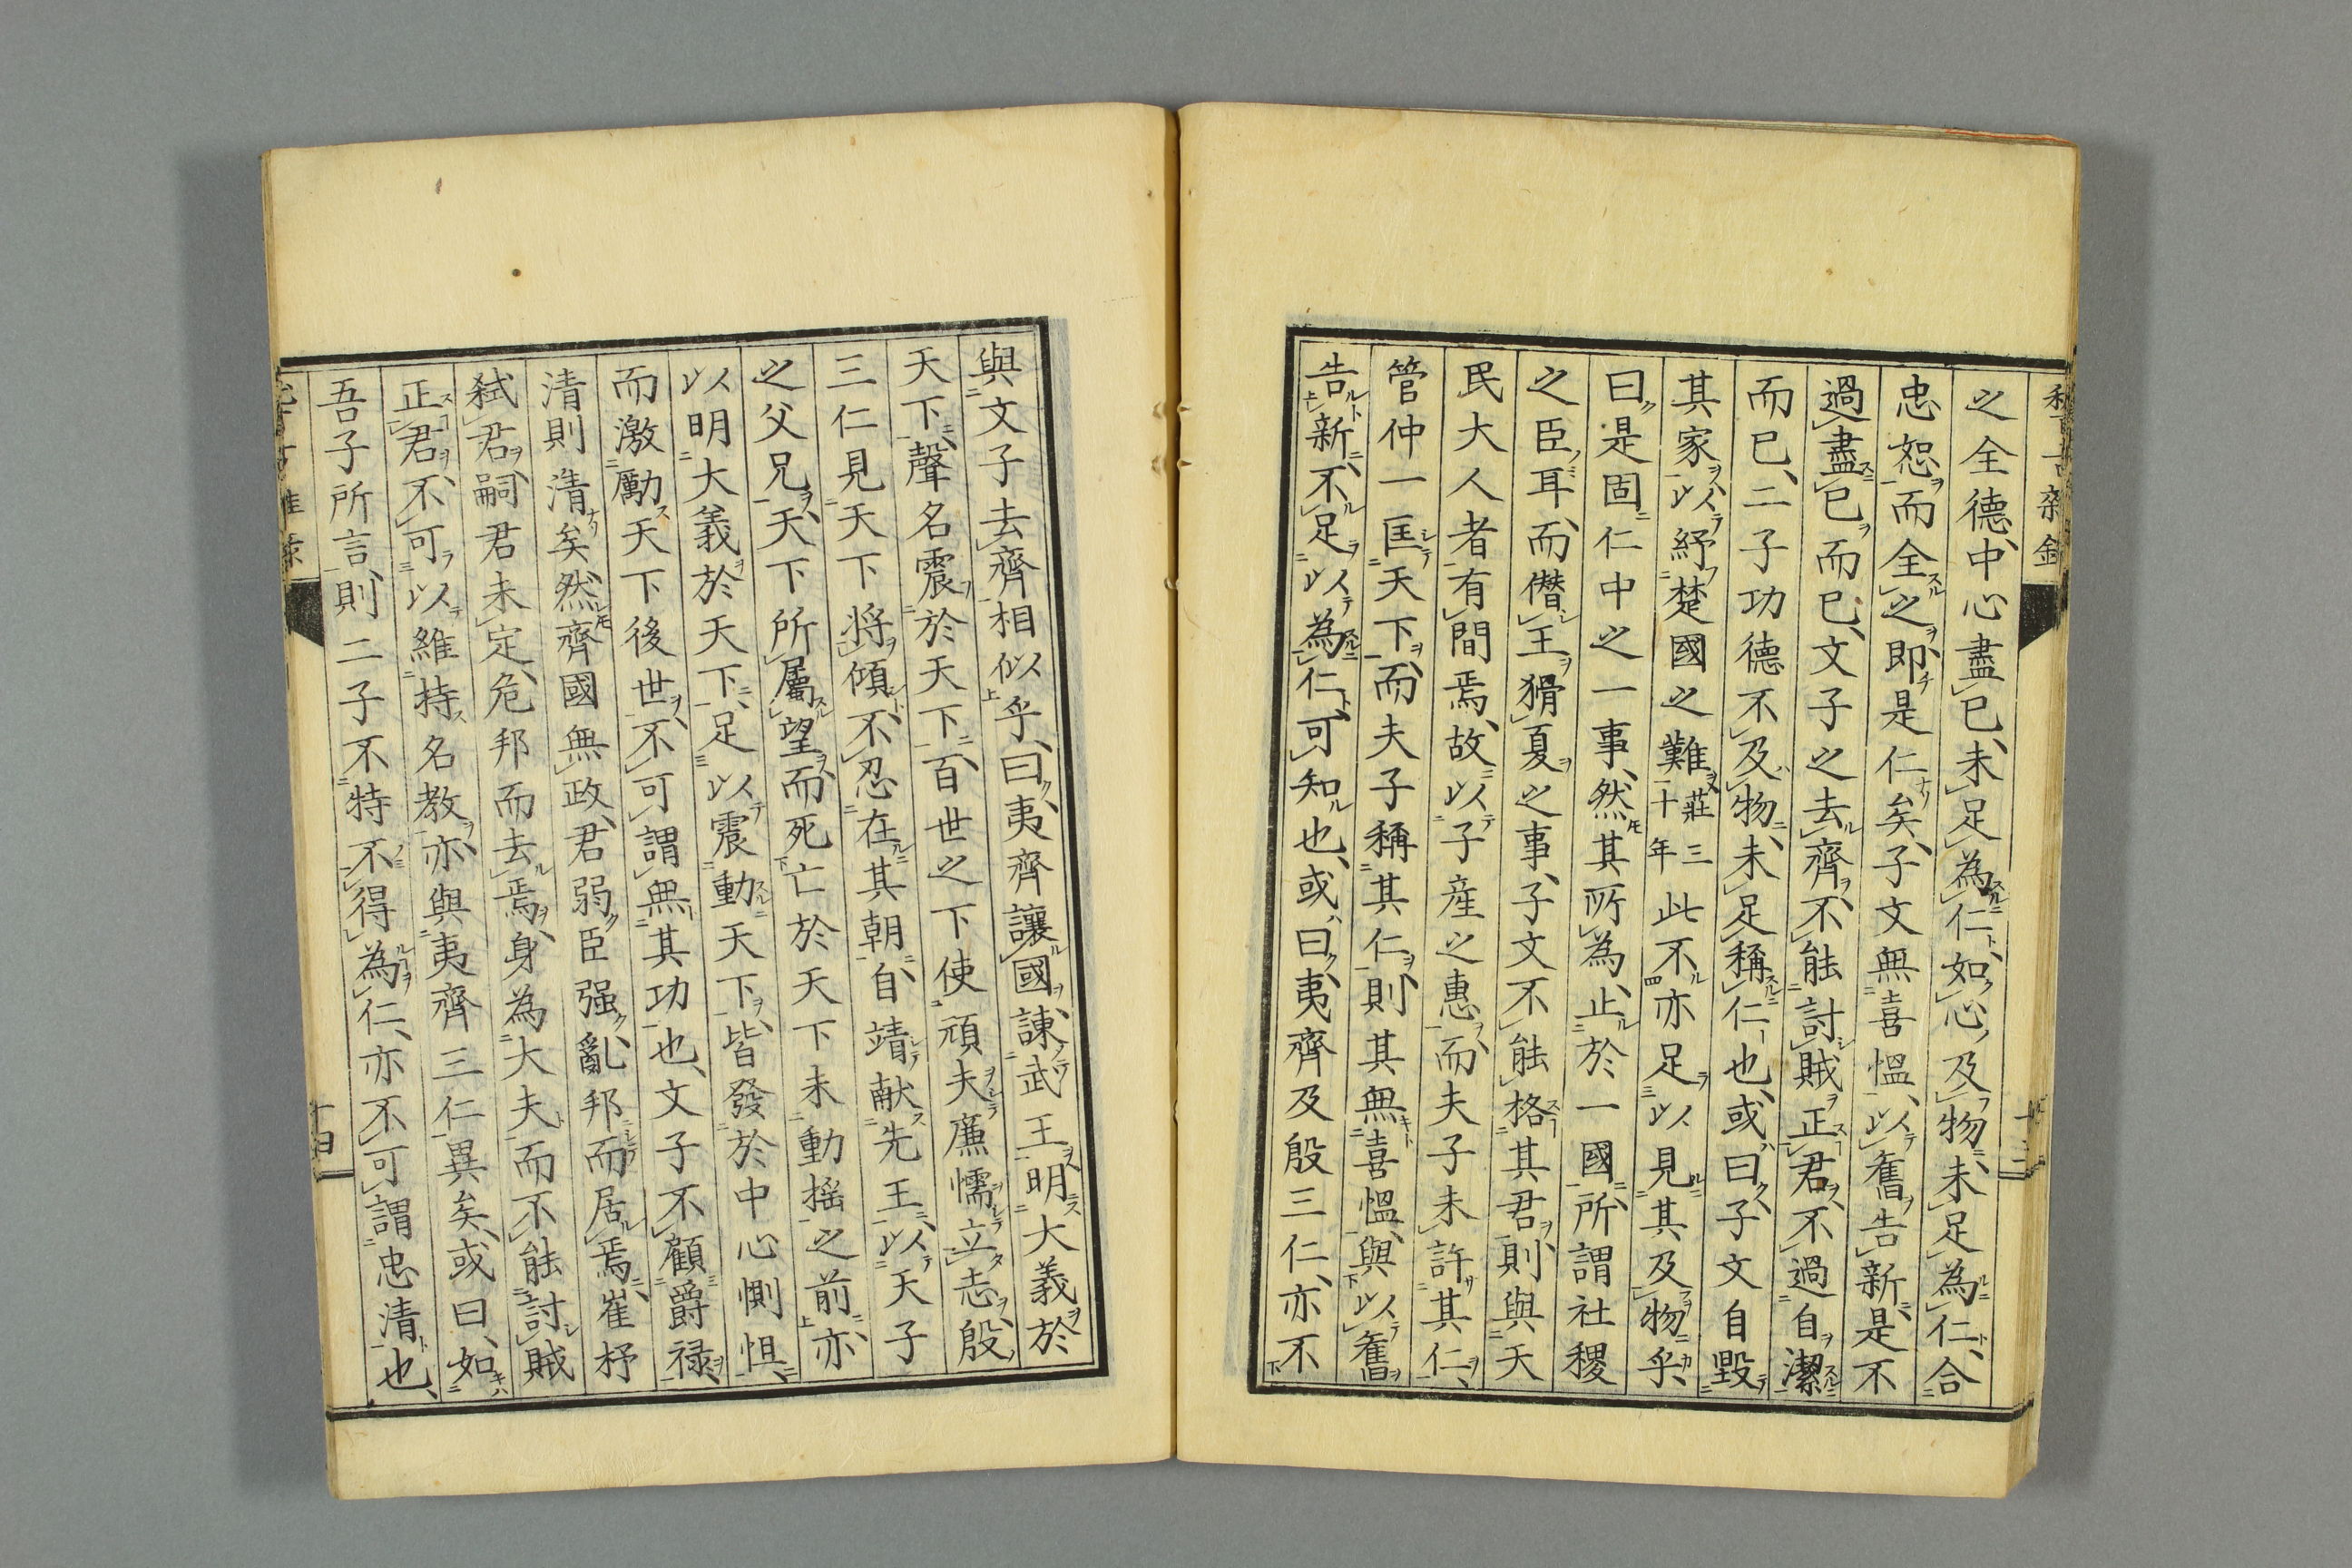 之全德、中心盡己、未足為仁、如心及物、未足為仁、合
忠恕而全之、即是仁矣、子文無喜愠、以舊告新、是不
過盡己而已、文子之去齊、不能討賊正君、不過自潔
而已、二子功德不及物、未足稱仁也、或曰、子文自毀
其家、以紓楚國之難莊三十年此不亦足以見其及物乎、
曰、是固仁中之一事、然其所為、止於一國、所謂社稷
之臣耳、而僭王猾夏之事、子文不能格其君、則與天
民大人者有間焉、故以子產之惠、而夫子未許其仁、
管仲一匡天下、而夫子稱其仁、則其無喜愠、與以舊
告新、不足以為仁、可知也、或曰、夷齊及殷三仁、亦不
與文子去齊相似乎、曰、夷齊讓國、諫武王、明大義於
天下、聲名震於天下、百世之下使頑夫廉懦立志、殷
三仁見天下將傾、不忍在其朝、自靖献先王、以天子
之父兄、天下所屬望、而死亡於天下未動揺之前、亦
以明大義於天下、足以震動天下、皆發於中心惻怛、
而激勵天下後世、不可謂無其功也、文子不顧爵禄、
清則清矣、然齊國無政、君弱臣强、亂邦而居焉、崔杼
弑君、嗣君未定、危邦而去焉、身為大夫、而不能討賊
正君、不可以維持名教、亦與夷齊三仁異矣、或曰、如
吾子所言、則二子不特不得為仁、亦不可謂忠清也、